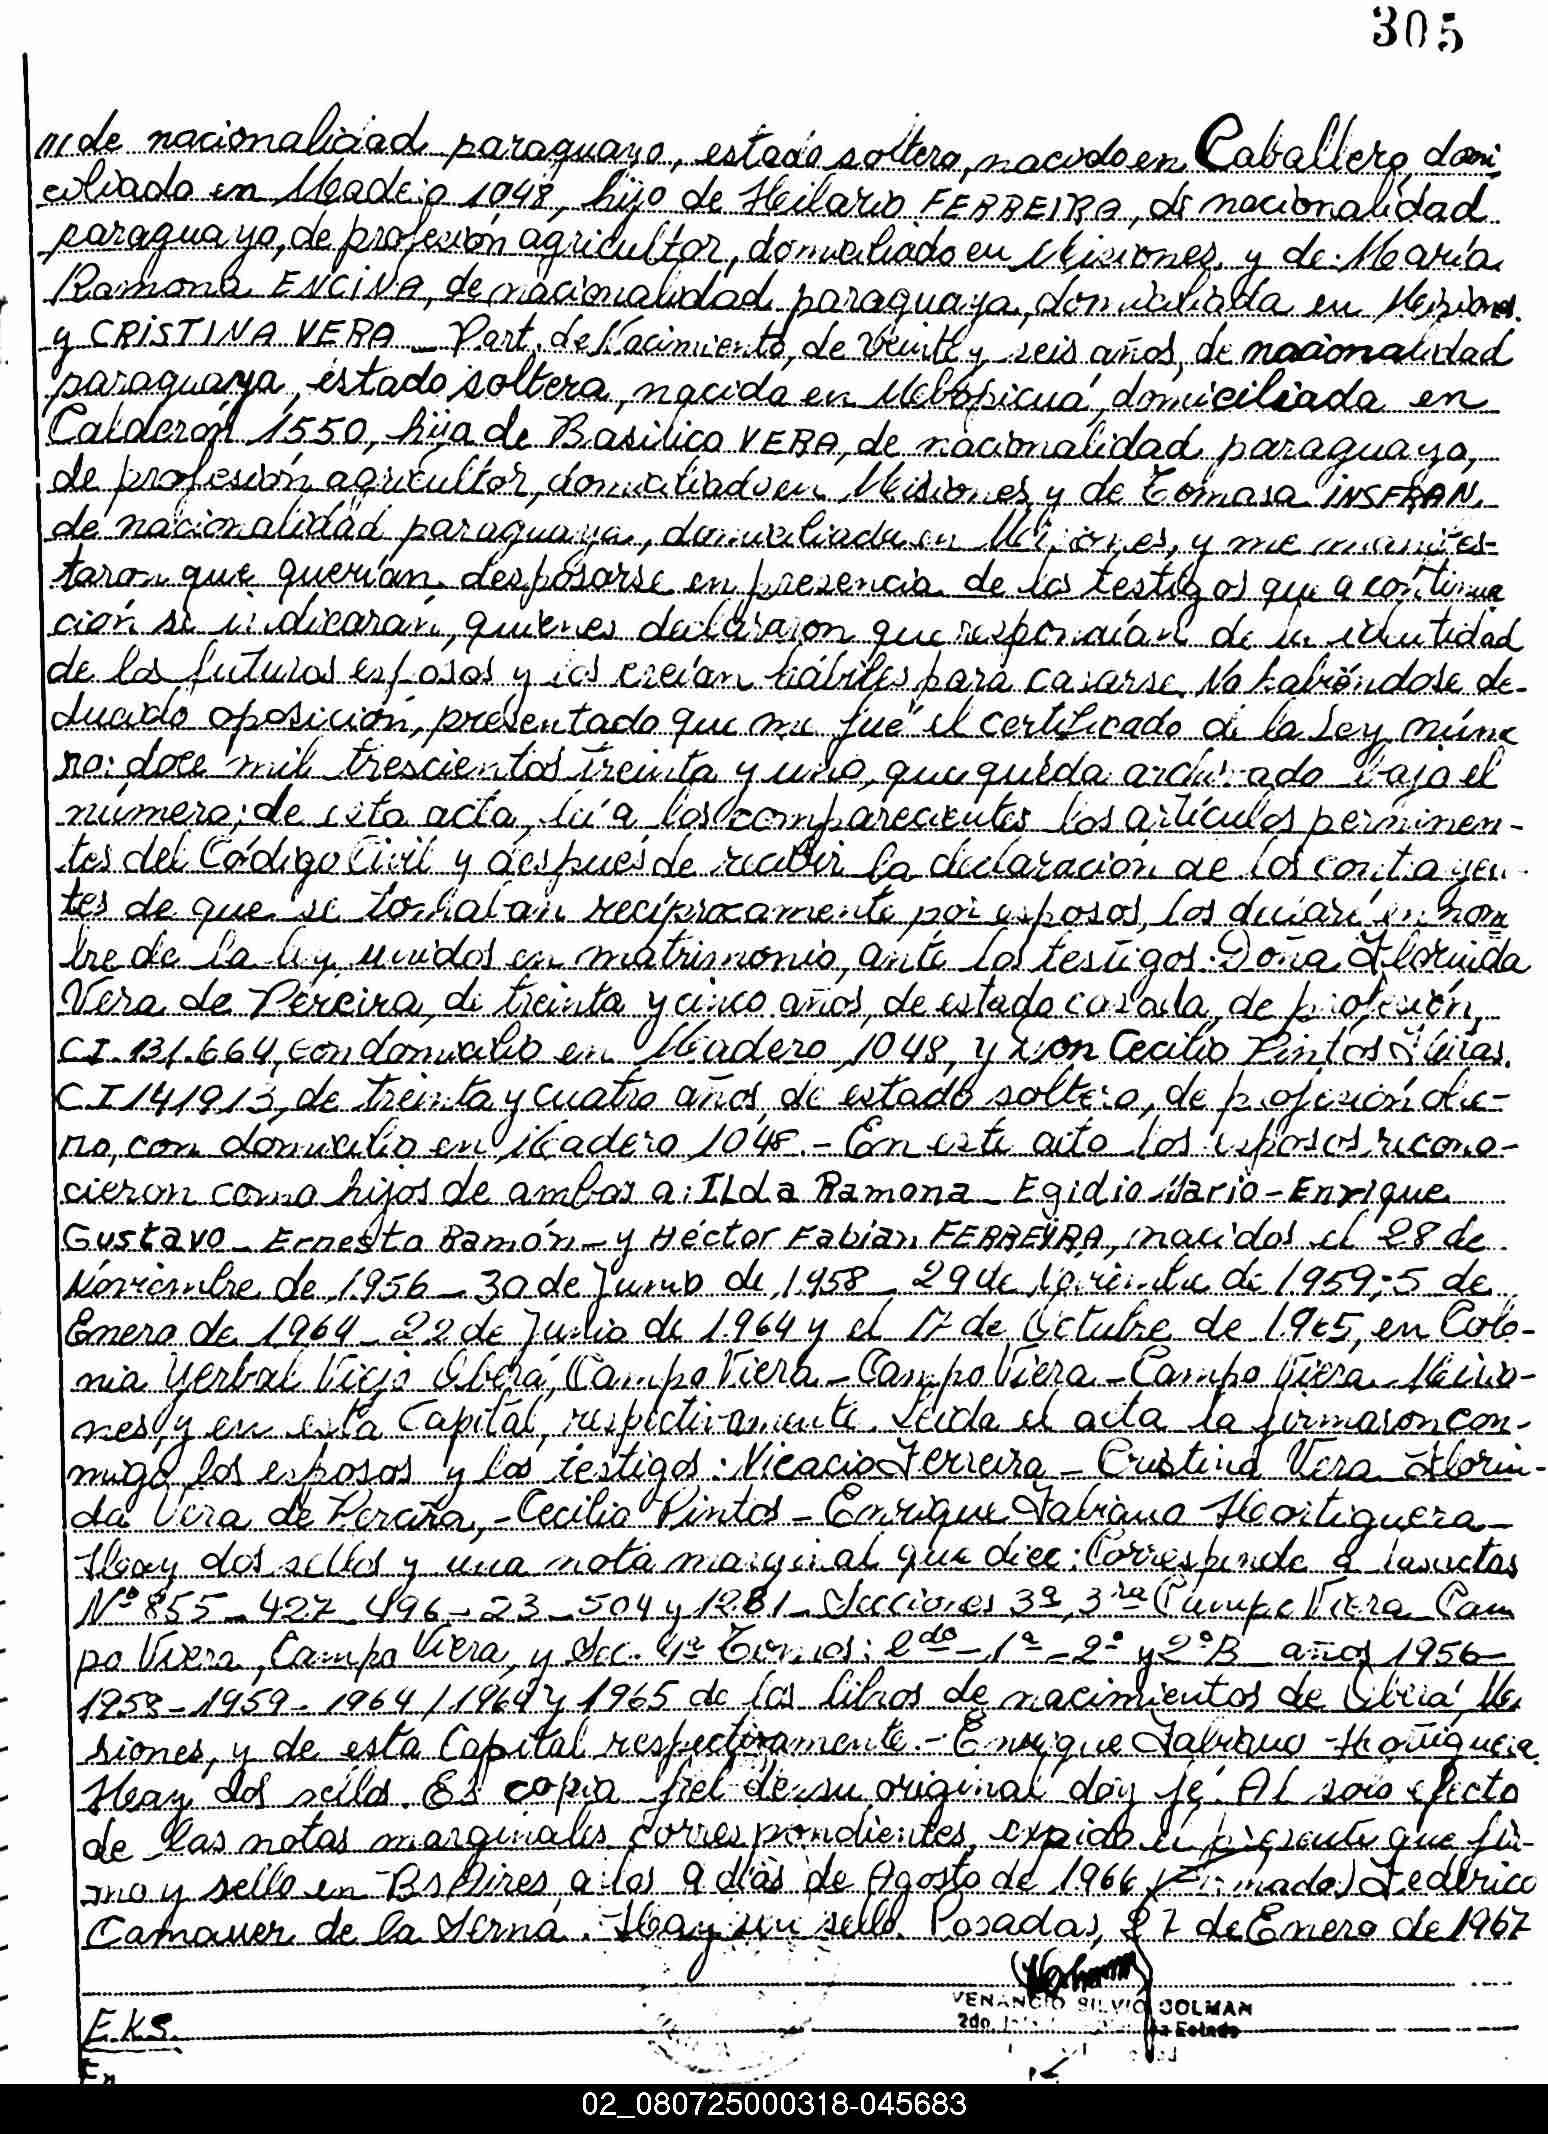 305
de nacionalidad paraguayo, estado soltero, nacido en Caballero, domi
ciliado en Madero 1048, hijo de Heilario FERREIRA, de nacionalidad
paraguaya, de profesión agricultor, domiciliado en Misiones y de María
Ramona ENCINA, de nacionalidad paraguaya, domiciliada en Misiones.
y CRISTINA VERA _ Part. de Nacimiento, de veinte y seis años, de nacionalidad
paraguaya, estado soltera, nacida en Mbopicuá, domiciliada en
Calderón 1550, hija de Basilico VERA, de nacionalidad paraguaya,
de profesión agricultor, domiciliado en Misiones y de Tomasa INSFRAN,
de nacionalidad paraguaya, domiciliada en Misiones, y me manifes-
taron que querían desposarse en presencia de los testigos que a continua
ción se indicarán, quienes declararon que respondían de la identidad
de los futuros esposos y los creían hábiles para casarse. No habiéndose de-
ducido oposición, presentado que me fué el certificado de la Ley núme
ro: doce mil trescientos treinta y uno, que queda archivado bajo el
número; de esta acta, leí a los comparecientes los artículos perninen-
tes del Código Civil y después de recibir la declaración de los contrayen-
tes de que se tomaban recíprocamente por esposos, los declaré en nom
bre de la ley, unidos en matrimonio, ante los testigos: Doña Florinda
Vera de Pereira, de treinta y cinco años, de estado casada, de profesión,
C.I. 131.664, con domicilio en Madero 1048, y don Cecilio Pintos
C.I 141913, de treinta y cuatro años, de estado soltero, de profesión obre-
ro, con domicilio en Madero 1048.- En este acto los esposos recono-
cieron como hijos de ambos a: ILda Ramona _ Egidio Mario - Enrique
Gustavo _ Ernesto Ramón _ y Héctor Fabian FERREIRA, nacidos el 28 de
Noviembre de 1956 _ 30 de Junio de 1958 _ 29 de Noviembre de 1959; 5 de
Enero de 1964 _ 22 de Junio de 1964 y el 17 de Octubre de 1965, en Colo-
nia Yerbal Viejo Oberá, Campo Viera _ Campo Viera _ Campo Viera Misio-
nes, y en esta Capital, respectivamente. Leída el acta la firmaron con-
migo los esposos y los testigos: Nicacio Ferreira _ Cristina Vera _ Florin-
da Vera de Pereira, - Cecilio Pintos - Enrique Fabiano Hortiguera _
Hay dos sellos y una nota marginal que dice: Corresponde a las actas
Nº 855 _ 427 _ 496 _ 23 _ 504 y 1281 _ Secciones 3ª, 3ra Campo Viera _ Cam
po Viera, Campo Viera, y Sec. 4ª Tomos: 2do _ 1ª _ 2º y 2º B _ años 1956 _
1958 - 1959 - 1964 / 1964 y 1965 de los libros de nacimientos de Oberá, Mi
siones, y de esta Capital respectivamente.- Enrique Fabiano Hortiguera.
Hay dos sellos. Es copia fiel de su original doy fé. Al solo efecto
de las notas marginales correspondientes, expido el presente que fir-
mo y sello en Bs Aires, a los 9 días de Agosto de 1966 (Firmado) Federico
Camauer de la Serna. Hay un sello. Posadas, 27 de Enero de 1967
VENANCIO SILVIO COLMAN
2do.
E.K.S.
02_080725000318-045683